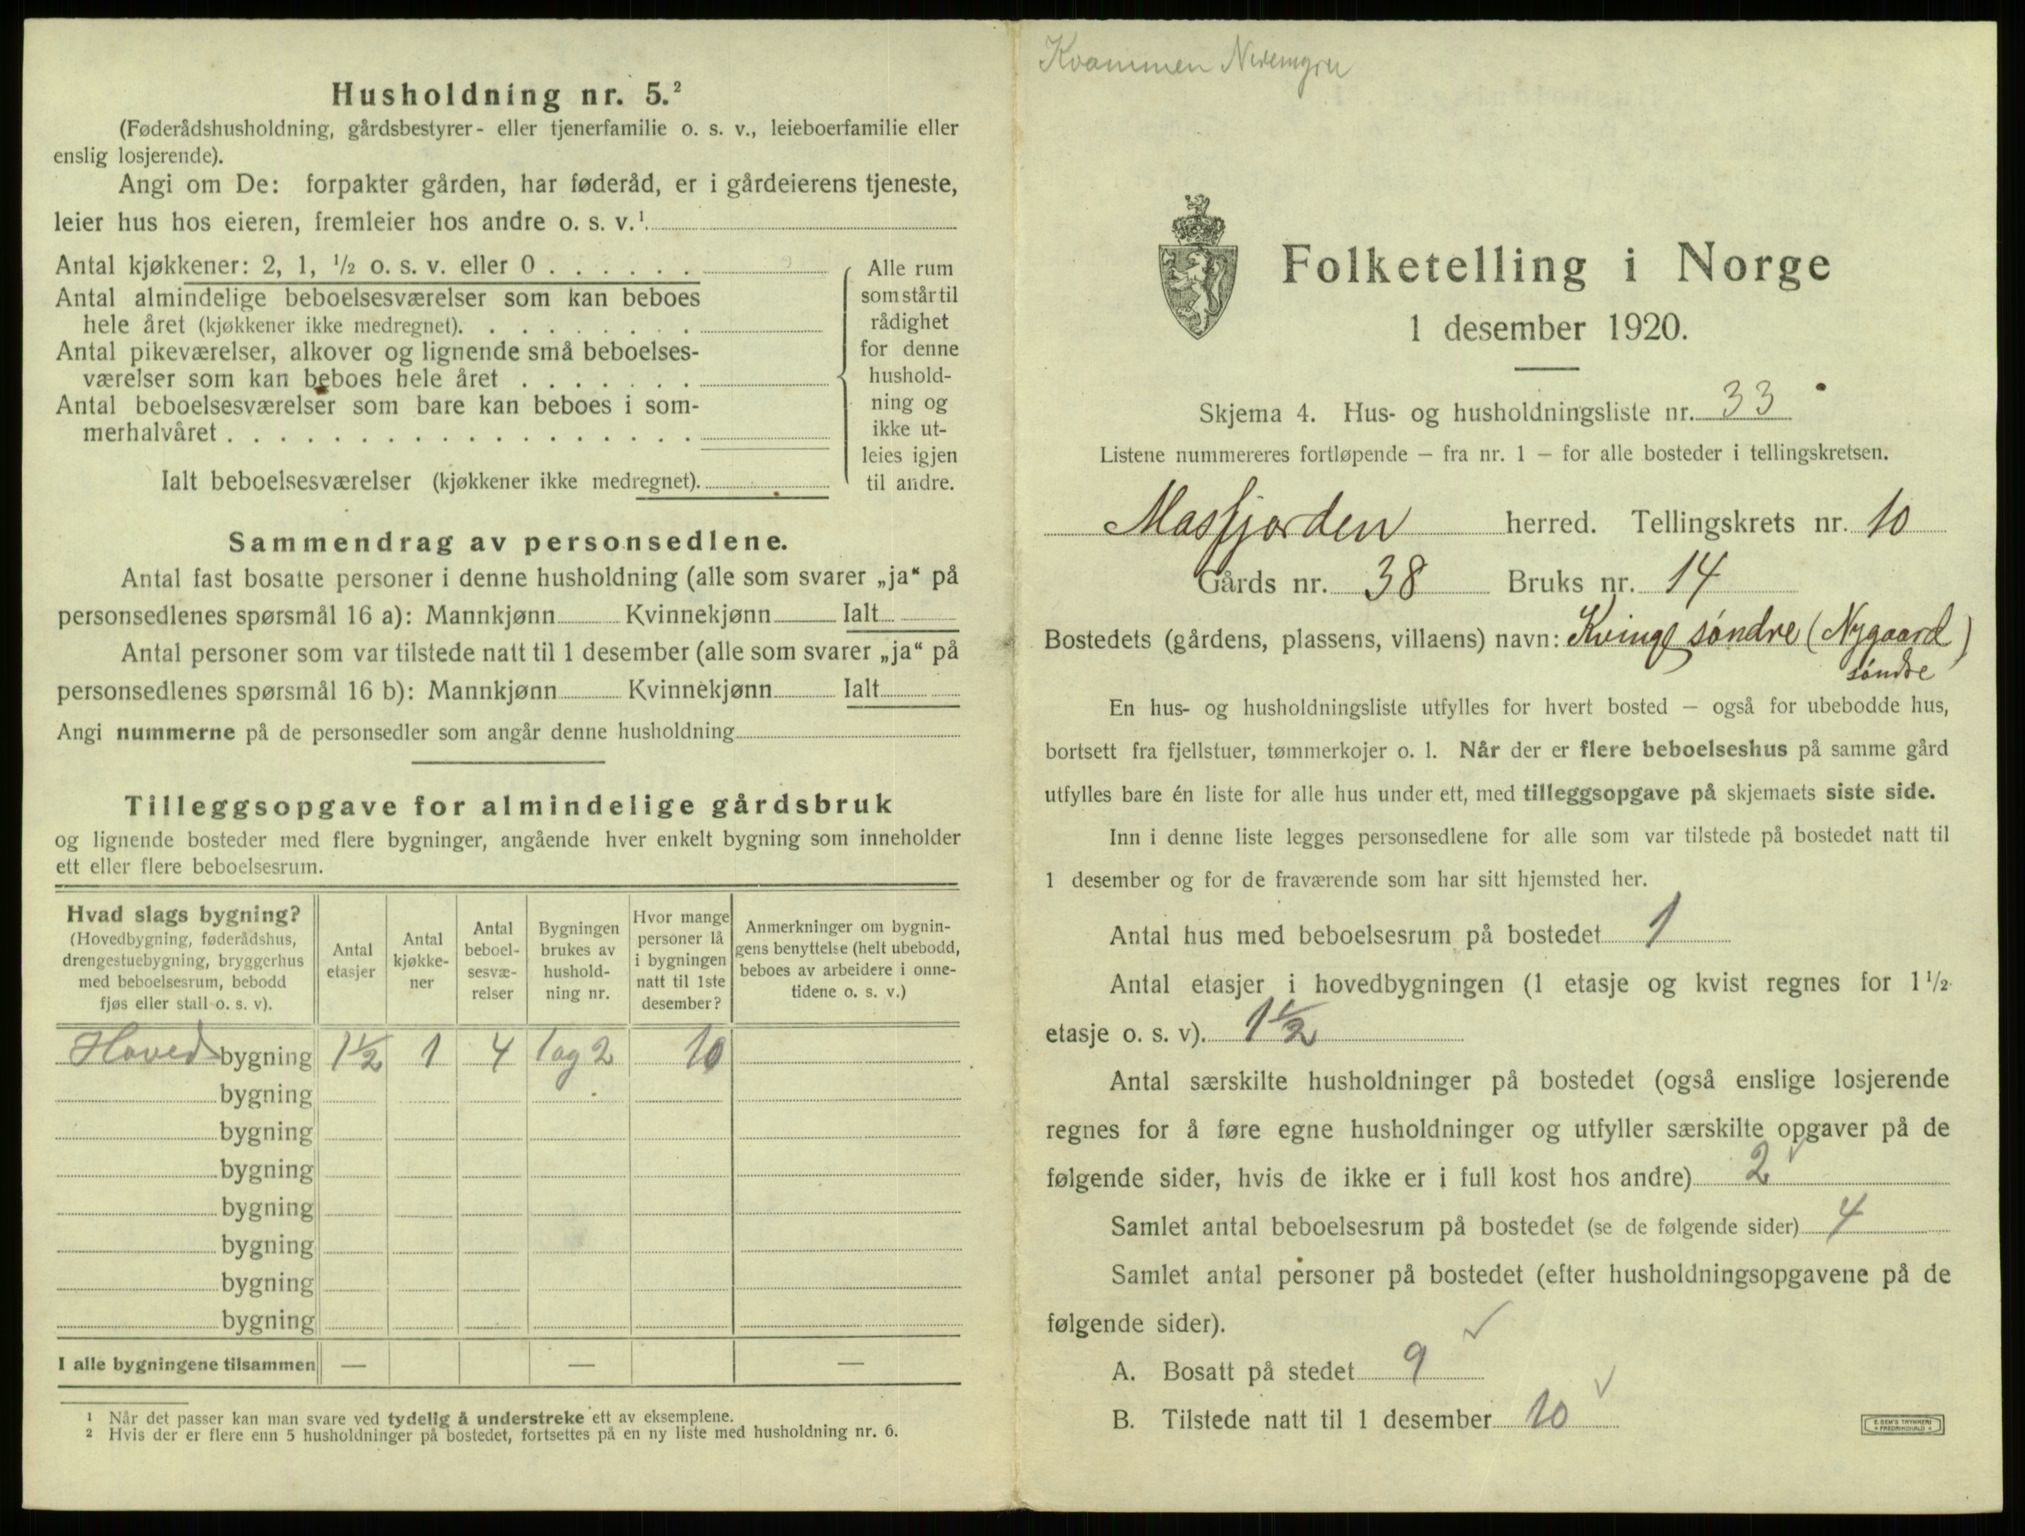 Husholdning nr. 5.²
(Føderådshusholdning, gårdsbestyrer- eller tjenerfamilie o. s. v., leieboerfamilie eller
enslig losjerende).
Angi om De: forpakter gården, har føderåd, er i gårdeierens tjeneste,
leier hus hos eieren, fremleier hos andre o. s. v.¹
Antal kjøkkener: 2, 1, ½ o. s. v. eller 0 . . . . . .
Antal almindelige beboelsesværelser som kan beboes
hele året (kjøkkener ikke medregnet). . . . . . . . .
Antal pikeværelser, alkover og lignende små beboelses-
værelser som kan beboes hele året . . . . . . .
Antal beboelsesværelser som bare kan beboes i som-
merhalvåret . . . . . . . . . . . . . . . . . .
Ialt beboelsesværelser (kjøkkener ikke medregnet).
Alle rum
som står til
rådighet
for denne
hushold-
ning og
ikke ut-
leies igjen
til andre.
Sammendrag av personsedlene.
Antal fast bosatte personer i denne husholdning (alle som svarer „ja“ på
personsedlenes spørsmål 16 a): Mannkjønn Kvinnekjønn Ialt
Antal personer som var tilstede natt til 1 desember (alle som svarer „ja“ på
personsedlenes spørsmål 16 b): Mannkjønn Kvinnekjønn Ialt
Angi nummerne på de personsedler som angår denne husholdning
Tilleggsopgave for almindelige gårdsbruk
og lignende bosteder med flere bygninger, angående hver enkelt bygning som inneholder
ett eller flere beboelsesrum.
Hvad slags bygning?
(Hovedbygning, føderådshus,
drengestuebygning, bryggerhus
med beboelsesrum, bebodd
fjøs eller stall o. s. v).
Antal
etasjer
Antal
kjøkke-
ner
Antal
beboel-
sesvæ-
relser
Bygningen
brukes av
hushold-
ning nr.
Hvor mange
personer lå
i bygningen
natt til 1ste
desember?
Anmerkninger om bygnin-
gens benyttelse (helt ubebodd,
beboes av arbeidere i onne-
tidene o. s. v.)
Hoved bygning 1½ 1 4 1 og 2 10
bygning
bygning
bygning
bygning
bygning
bygning
bygning
I alle bygningene tilsammen — — —
¹ Når det passer kan man svare ved tydelig å understreke ett av eksemplene.
² Hvis der er flere enn 5 husholdninger på bostedet, fortsettes på en ny liste med husholdning nr. 6.
Kvammen
Folketelling i Norge
1 desember 1920.
Skjema 4. Hus- og husholdningsliste nr. 33
Listene nummereres fortløpende — fra nr. 1 — for alle bosteder i tellingskretsen.
Masfjorden herred. Tellingskrets nr. 10
Gårds nr. 38 Bruks nr. 14
Bostedets (gårdens, plassens, villaens) navn: Kvinge søndre (Nygaard)
søndre
En hus- og husholdningsliste utfylles for hvert bosted — også for ubebodde hus,
bortsett fra fjellstuer, tømmerkojer o. l. Når der er flere beboelseshus på samme gård
utfylles bare én liste for alle hus under ett, med tilleggsopgave på skjemaets siste side.
Inn i denne liste legges personsedlene for alle som var tilstede på bostedet natt til
1 desember og for de fraværende som har sitt hjemsted her.
Antal hus med beboelsesrum på bostedet 1
Antal etasjer i hovedbygningen (1 etasje og kvist regnes for 1½
etasje o. s. v). 1½
Antal særskilte husholdninger på bostedet (også enslige losjerende
regnes for å føre egne husholdninger og utfyller særskilte opgaver på de
følgende sider, hvis de ikke er i full kost hos andre) 2 ✓
Samlet antal beboelsesrum på bostedet (se de følgende sider) 4
Samlet antal personer på bostedet (efter husholdningsopgavene på de
følgende sider).
A. Bosatt på stedet 9 ✓
B. Tilstede natt til 1 desember 10 ✓